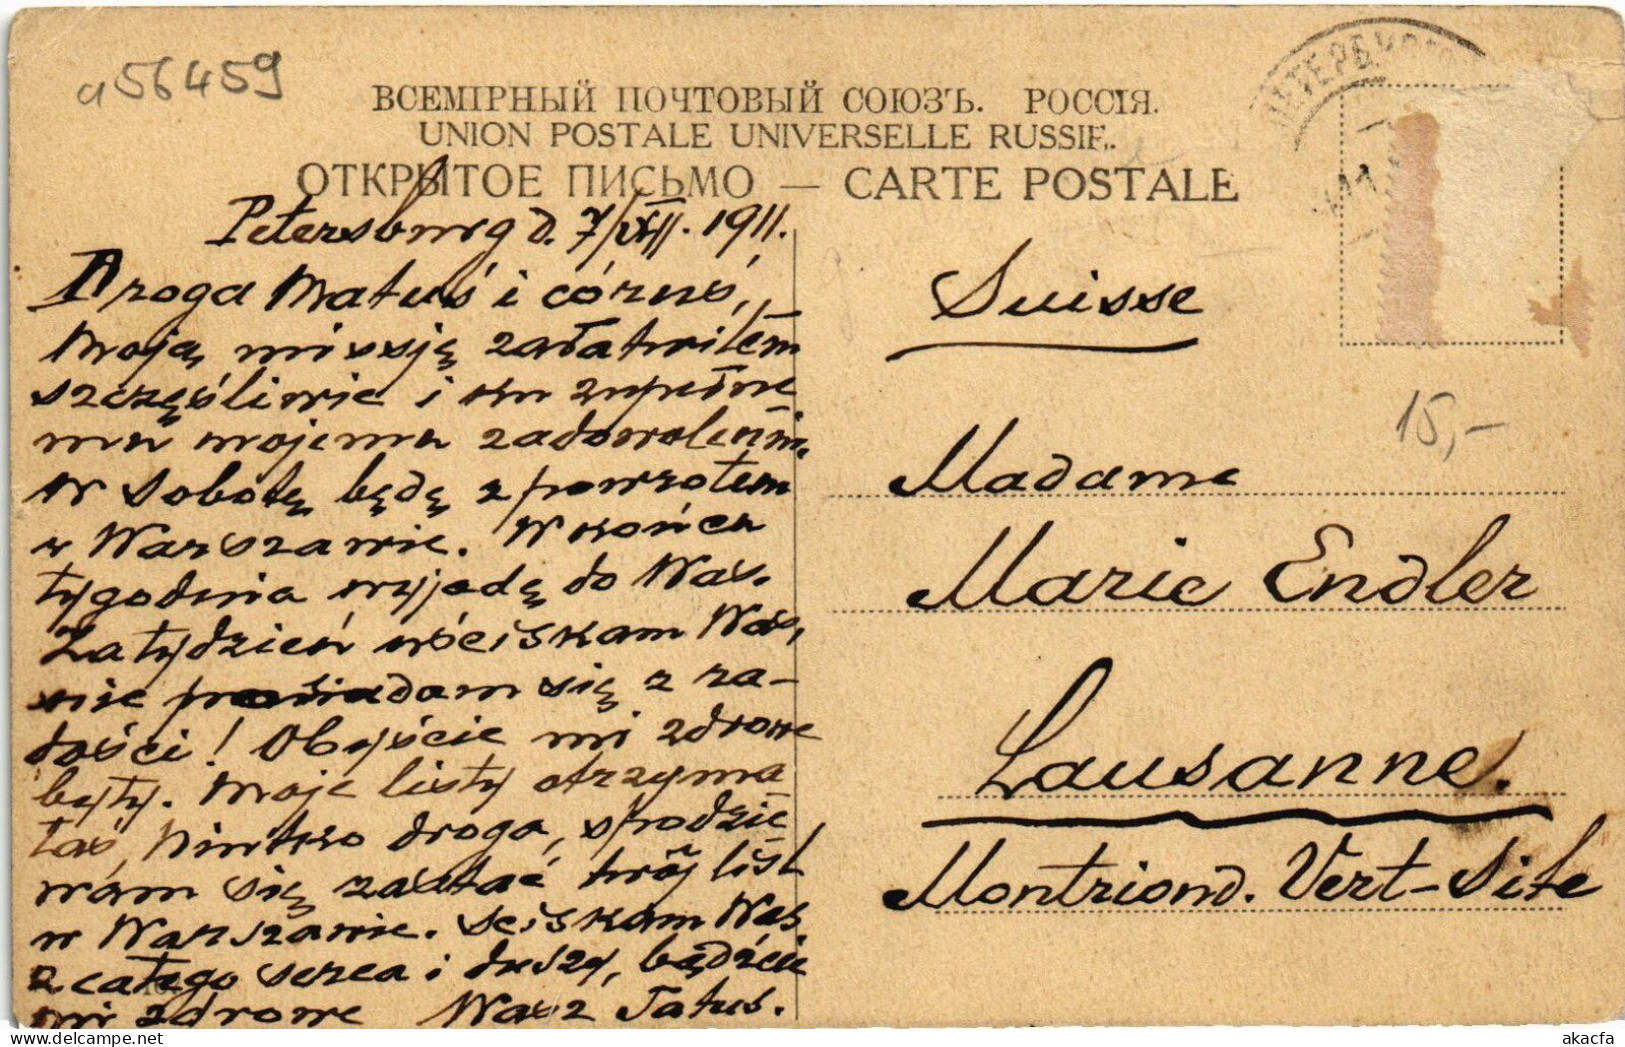 a56459
ВСЕМІРНЫЙ ПОЧТОВЫЙ СОЮЗЪ. РОССІЯ.
UNION POSTALE UNIVERSELLE RUSSIE.
ОТКРЫТОЕ ПИСЬМО — CARTE POSTALE
ПЕТЕРБУРГ
Petersburg d. 7/XII. 1911.
Droga Matuś i córuś,
Moją missję załatwiłem
szczęśliwie i ku zupełne
mu mojemu zadowoleniu.
W sobotę będę z powrotem
w Warszawie. W końcu
tygodnia wyjadę do Was.
Za tydzień uściskam Was,
nie posiadam się z ra-
dości! Obyście mi zdrowe
były. Moje listy otrzyma
łaś, Ninko droga, spodzie
wam się zastać twój list
w Warszawie. Ściskam Was
z całego serca i duszy, bądźcie
mi zdrowe Wasz Tatuś.
Suisse
15,-
Madame
Marie Endler
Lausanne.
Montriond. Vert-Site
akacfa